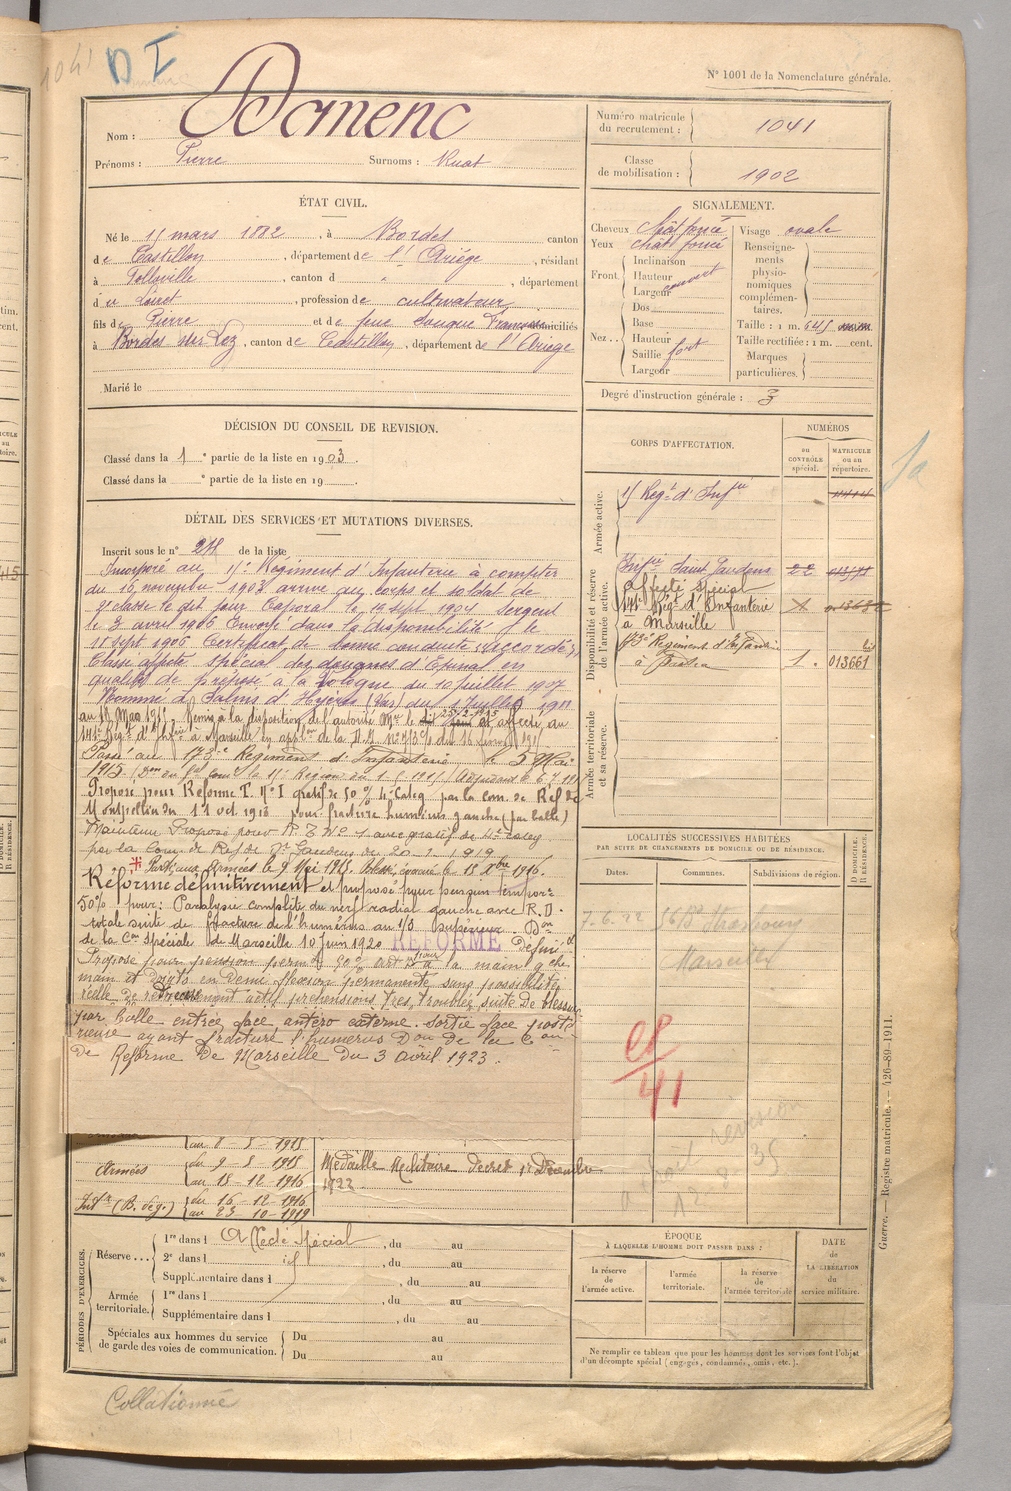 1041
D I
N° 1001 de la Nomenclature générale.
Nom : Domenc
Prénoms : Pierre Surnoms : Ruat
Numéro matricule du recrutement : 1041
Classe de mobilisation : 1902
ÉTAT CIVIL.
Né le 15 mars 1882, à Bordes canton
de Castillon, département de l'Ariége, résidant
à Tolloville, canton d " , département
du Loiret, profession de cultivateur
fils de Pierre et de feue Souque Françoise domiciliés
à Bordes sur Lez, canton de Castillon, département de l'Ariége
Marié le
SIGNALEMENT.
Cheveux chât foncé
Yeux chât foncé
Front. Inclinaison
Hauteur
Largeur couvert
Nez... Dos
Base
Hauteur
Saillie fort
Largeur
Visage ovale
Renseignements physionomiques complémentaires.
Taille : 1 m. 645
Taille rectifiée : 1 m. cent.
Marques particulières.
Degré d'instruction générale : 3
DÉCISION DU CONSEIL DE REVISION.
Classé dans la 1e partie de la liste en 1903.
Classé dans la e partie de la liste en 19
DÉTAIL DES SERVICES ET MUTATIONS DIVERSES.
Inscrit sous le n° 211 de la liste
Incorporé au 15e Régiment d'Infanterie à compter
du 16 novembre 1903 arrivé au corps et soldat de
2e classe le dit jour Caporal le 19 sept 1904 Sergent
le 3 avril 1906 Envoyé dans la disponibilité le
18 sept 1906 Certificat de bonne conduite accordé
Classé affecté spécial des douanes d'Epinal en
qualité de préposé à la Sologne du 10 juillet 1907
Nommé à Salins d'Hyères (Var) du 1 Juillet 1911
Remis à la disposition de l'autorité Mre le
141e Régt d'Infie à Marseille en applon de la
Passé au 173e Régiment d'Infanterie le 5 Mai
1915
Proposé pour Réforme T. N° I gratif de 50 % 4e Categ par la com. de Réf de
Montpellier du 11 oct. 1918 pour fracture humérus gauche (par balle)
Maintenu Proposé pour R T N° 1 avec gratif de 4e categ
par la Com de Réf de St Gaudens du 20-1-1919
* Parti aux Armées le 9 Mai 1915. Blessé, évacué le 15 Xbre 1916.
Réformé définitivement et proposé pour pension tempore
50% pour: Paralysie complète du nerf radial gauche avec R.D.
totale suite de fracture de l'humérus au 1/3 supérieur. Don
de la Con spéciale de Marseille 10 juin 1920 RÉFORMÉ Définitif
Proposé pour pension permte 50% main gche
main et doigts en Demi flexion permanente sans possibilité
réelle de redressement actif préhensions très troublées suite de blessure
par balle entrée face antéro externe. Sortie face posté
rieure ayant fracturé l'humérus Don de la Con
De Réforme De Marseille Du 3 Avril 1923.
au 8-5-1915
Armées du 9-5-1915
au 15-12-1916
Intr (B. Dég.) du 16-12-1916
au 23-10-1919
Médaille Militaire Décret 1r Décembre
1922
CORPS D'AFFECTATION.
NUMÉROS
au CONTRÔLE spécial.
MATRICULE ou au répertoire.
Armée active.
15 Régt d'Infie
Disponibilité et réserve de l'armée active.
Infie Saint Gaudens 22
Affecté Spécial
141e Régt d'Infanterie
à Marseille
173e Régiment d'Infanterie
à Bastia 1. 013661 bis
Armée territoriale et sa réserve.
LOCALITÉS SUCCESSIVES HABITÉES
PAR SUITE DE CHANGEMENTS DE DOMICILE OU DE RÉSIDENCE.
Dates.
Communes.
Subdivisions de région.
D DOMICILE. R RÉSIDENCE.
7-6-22 56 Bd Strasbourg
Marseille
41
révision
12-8-35
PÉRIODES D'EXERCICES.
Réserve... 1re dans l Affecté spécial, du au
2e dans l id, du au
Supplémentaire dans l , du au
Armée territoriale. 1re dans l , du au
Supplémentaire dans l , du au
Spéciales aux hommes du service de garde des voies de communication. Du au
Du au
ÉPOQUE
À LAQUELLE L'HOMME DOIT PASSER DANS :
la réserve de l'armée active.
l'armée territoriale.
la réserve de l'armée territoriale
DATE de LA LIBÉRATION du service militaire.
Ne remplir ce tableau que pour les hommes dont les services font l'objet
d'un décompte spécial (engagés, condamnés, omis, etc.).
Guerre. — Registre matricule. — 426-89-1911.
Collationné